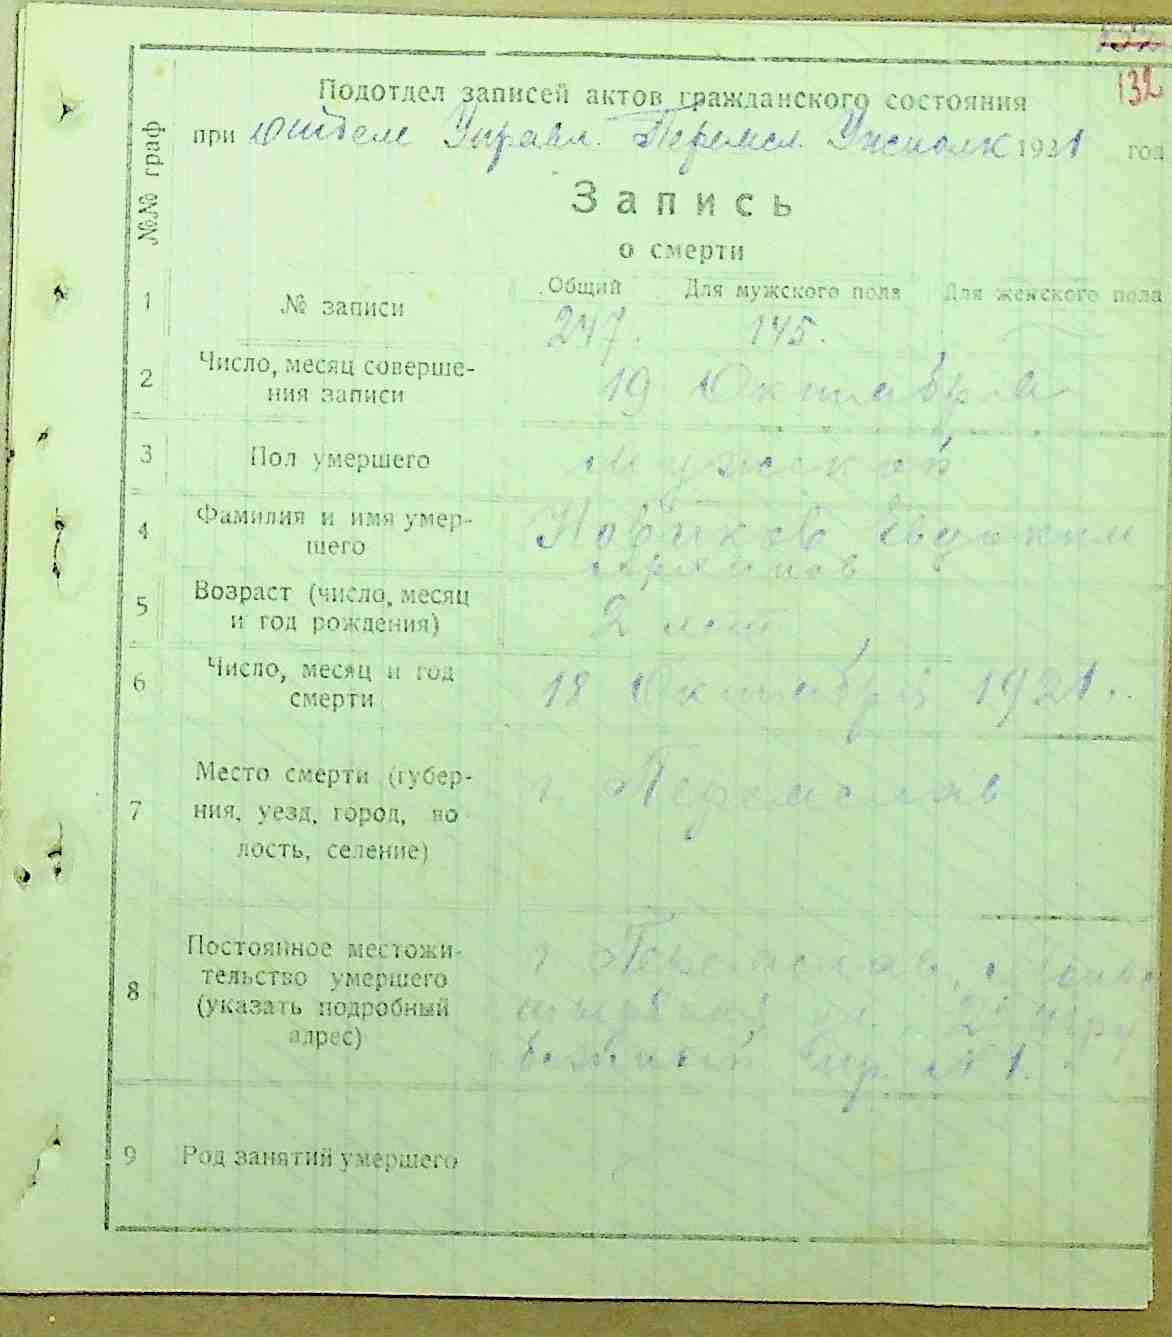 132
Подотдел записей актов гражданского состояния
при Отделе Управл. Перемел. Уисполк 1921 год
№№ граф
Запись
о смерти
1 № записи Общий Для мужского пола Для женского пола
247. 145.
2 Число, месяц соверше-
ния записи 19 Октября
3 Пол умершего мужской
4 Фамилия и имя умер-
шего Новиков Евдоким
5 Возраст (число, месяц
и год рождения) 2 лет
6 Число, месяц и год
смерти 18 Октября 1921.
7 Место смерти (губер-
ния, уезд, город, во
лость, селение) г.
8 Постоянное местожи-
тельство умершего
(указать подробный
адрес) г. № 1.
9 Род занятий умершего